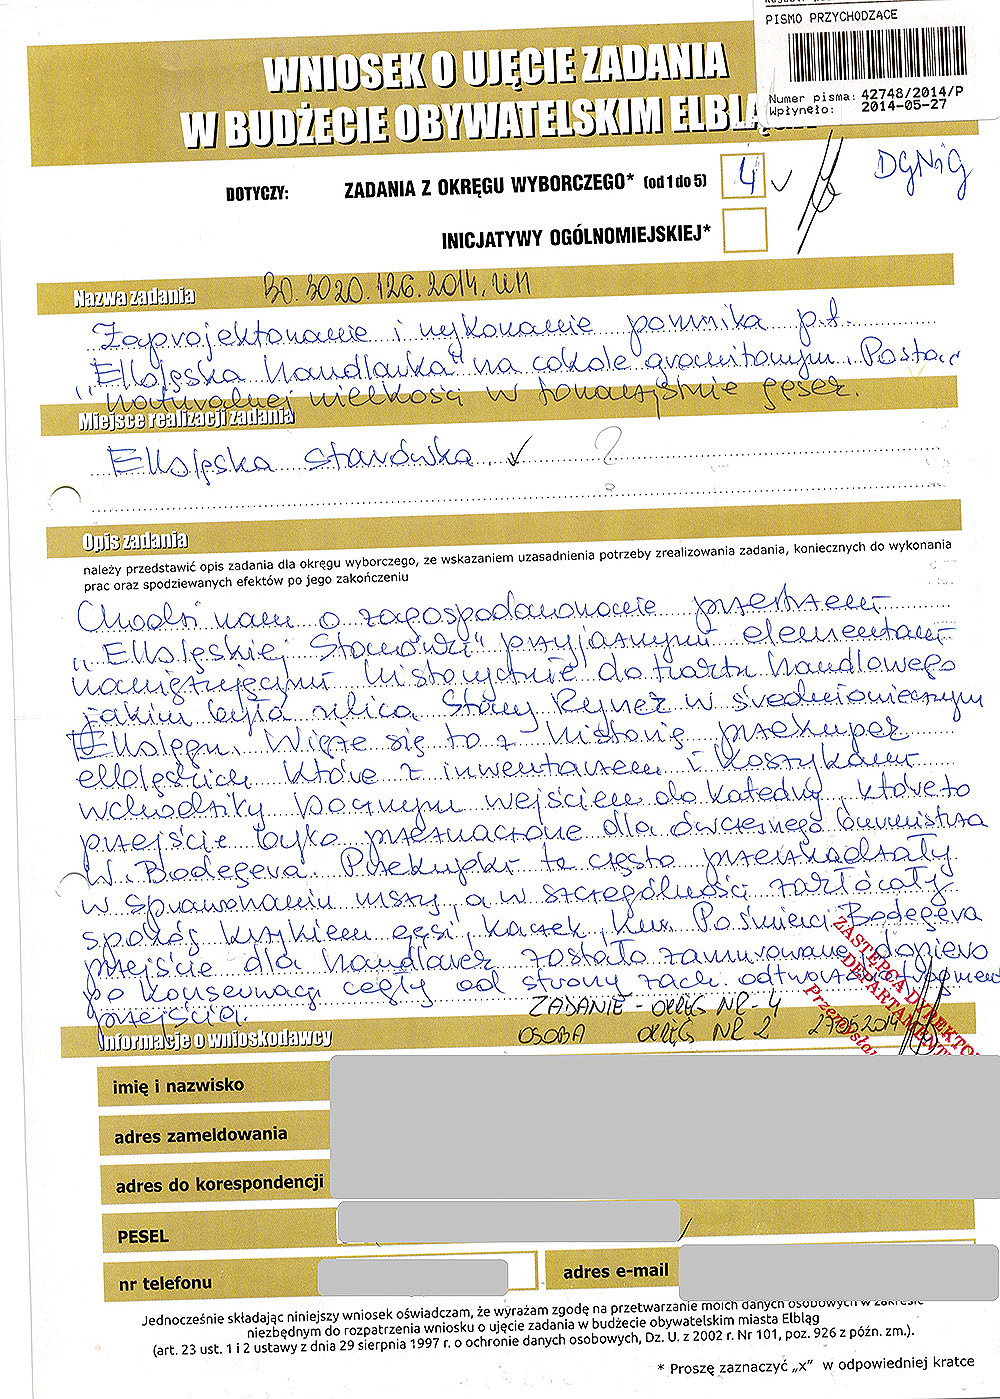 PISMO PRZYCHODZĄCE
Numer pisma: 42748/2014/P
Wpłynęło: 2014-05-27
WNIOSEK O UJĘCIE ZADANIA
W BUDŻECIE OBYWATELSKIM
DOTYCZY: ZADANIA Z OKRĘGU WYBORCZEGO* (od 1 do 5) 4
DGNiG
INICJATYWY OGÓLNOMIEJSKIEJ*
Nazwa zadania
30.3020.126.2014.UM
Zaprojektowanie i wykonanie pomnika p.t.
"Elbląska Handlarka" na cokole granitowym. Postać
naturalnej wielkości w towarzystwie gęsi.
Miejsce realizacji zadania
Elbląska starówka. ?
Opis zadania
należy przedstawić opis zadania dla okręgu wyborczego, ze wskazaniem uzasadnienia potrzeby zrealizowania zadania, koniecznych do wykonania
prac oraz spodziewanych efektów po jego zakończeniu
Chodzi nam o zagospodarowanie przestrzeni
"Elbląskiej Starówki" przyjaznymi elementami
nawiązującymi historycznie do traktu handlowego
jakim była ulica Stary Rynek w średniowiecznym
Elblągu. Wiąże się to z historią przekupek
elbląskich które z inwentarzem i koszykami
wchodziły bocznym wejściem do katedry, które to
przejście było przeznaczone dla ówczesnego burmistrza
W. Bodegeva. Przekupki te często przeszkadzały
w sprawowaniu mszy, a w szczególności zakłócały
spokój krzykiem gęsi, kaczek, kur. Po śmierci Bodegeva
przejście dla handlarek zostało zamurowane, dopiero
po konserwacji cegły od strony zach. odtworzono
przejścia.
ZADANIE - OKRĘG NR - 4
OSOBA OKRĘG NR 2 27.05.2014
ZASTĘPCA DYREKTORA
DEPARTAMENTU
Przemysław
Informacje o wnioskodawcy
imię i nazwisko
adres zameldowania
adres do korespondencji
PESEL
nr telefonu
adres e-mail
Jednocześnie składając niniejszy wniosek oświadczam, że wyrażam zgodę na przetwarzanie moich danych osobowych w zakresie
niezbędnym do rozpatrzenia wniosku o ujęcie zadania w budżecie obywatelskim miasta Elbląg
(art. 23 ust. 1 i 2 ustawy z dnia 29 sierpnia 1997 r. o ochronie danych osobowych, Dz. U. z 2002 r. Nr 101, poz. 926 z późn. zm.).
* Proszę zaznaczyć „x" w odpowiedniej kratce